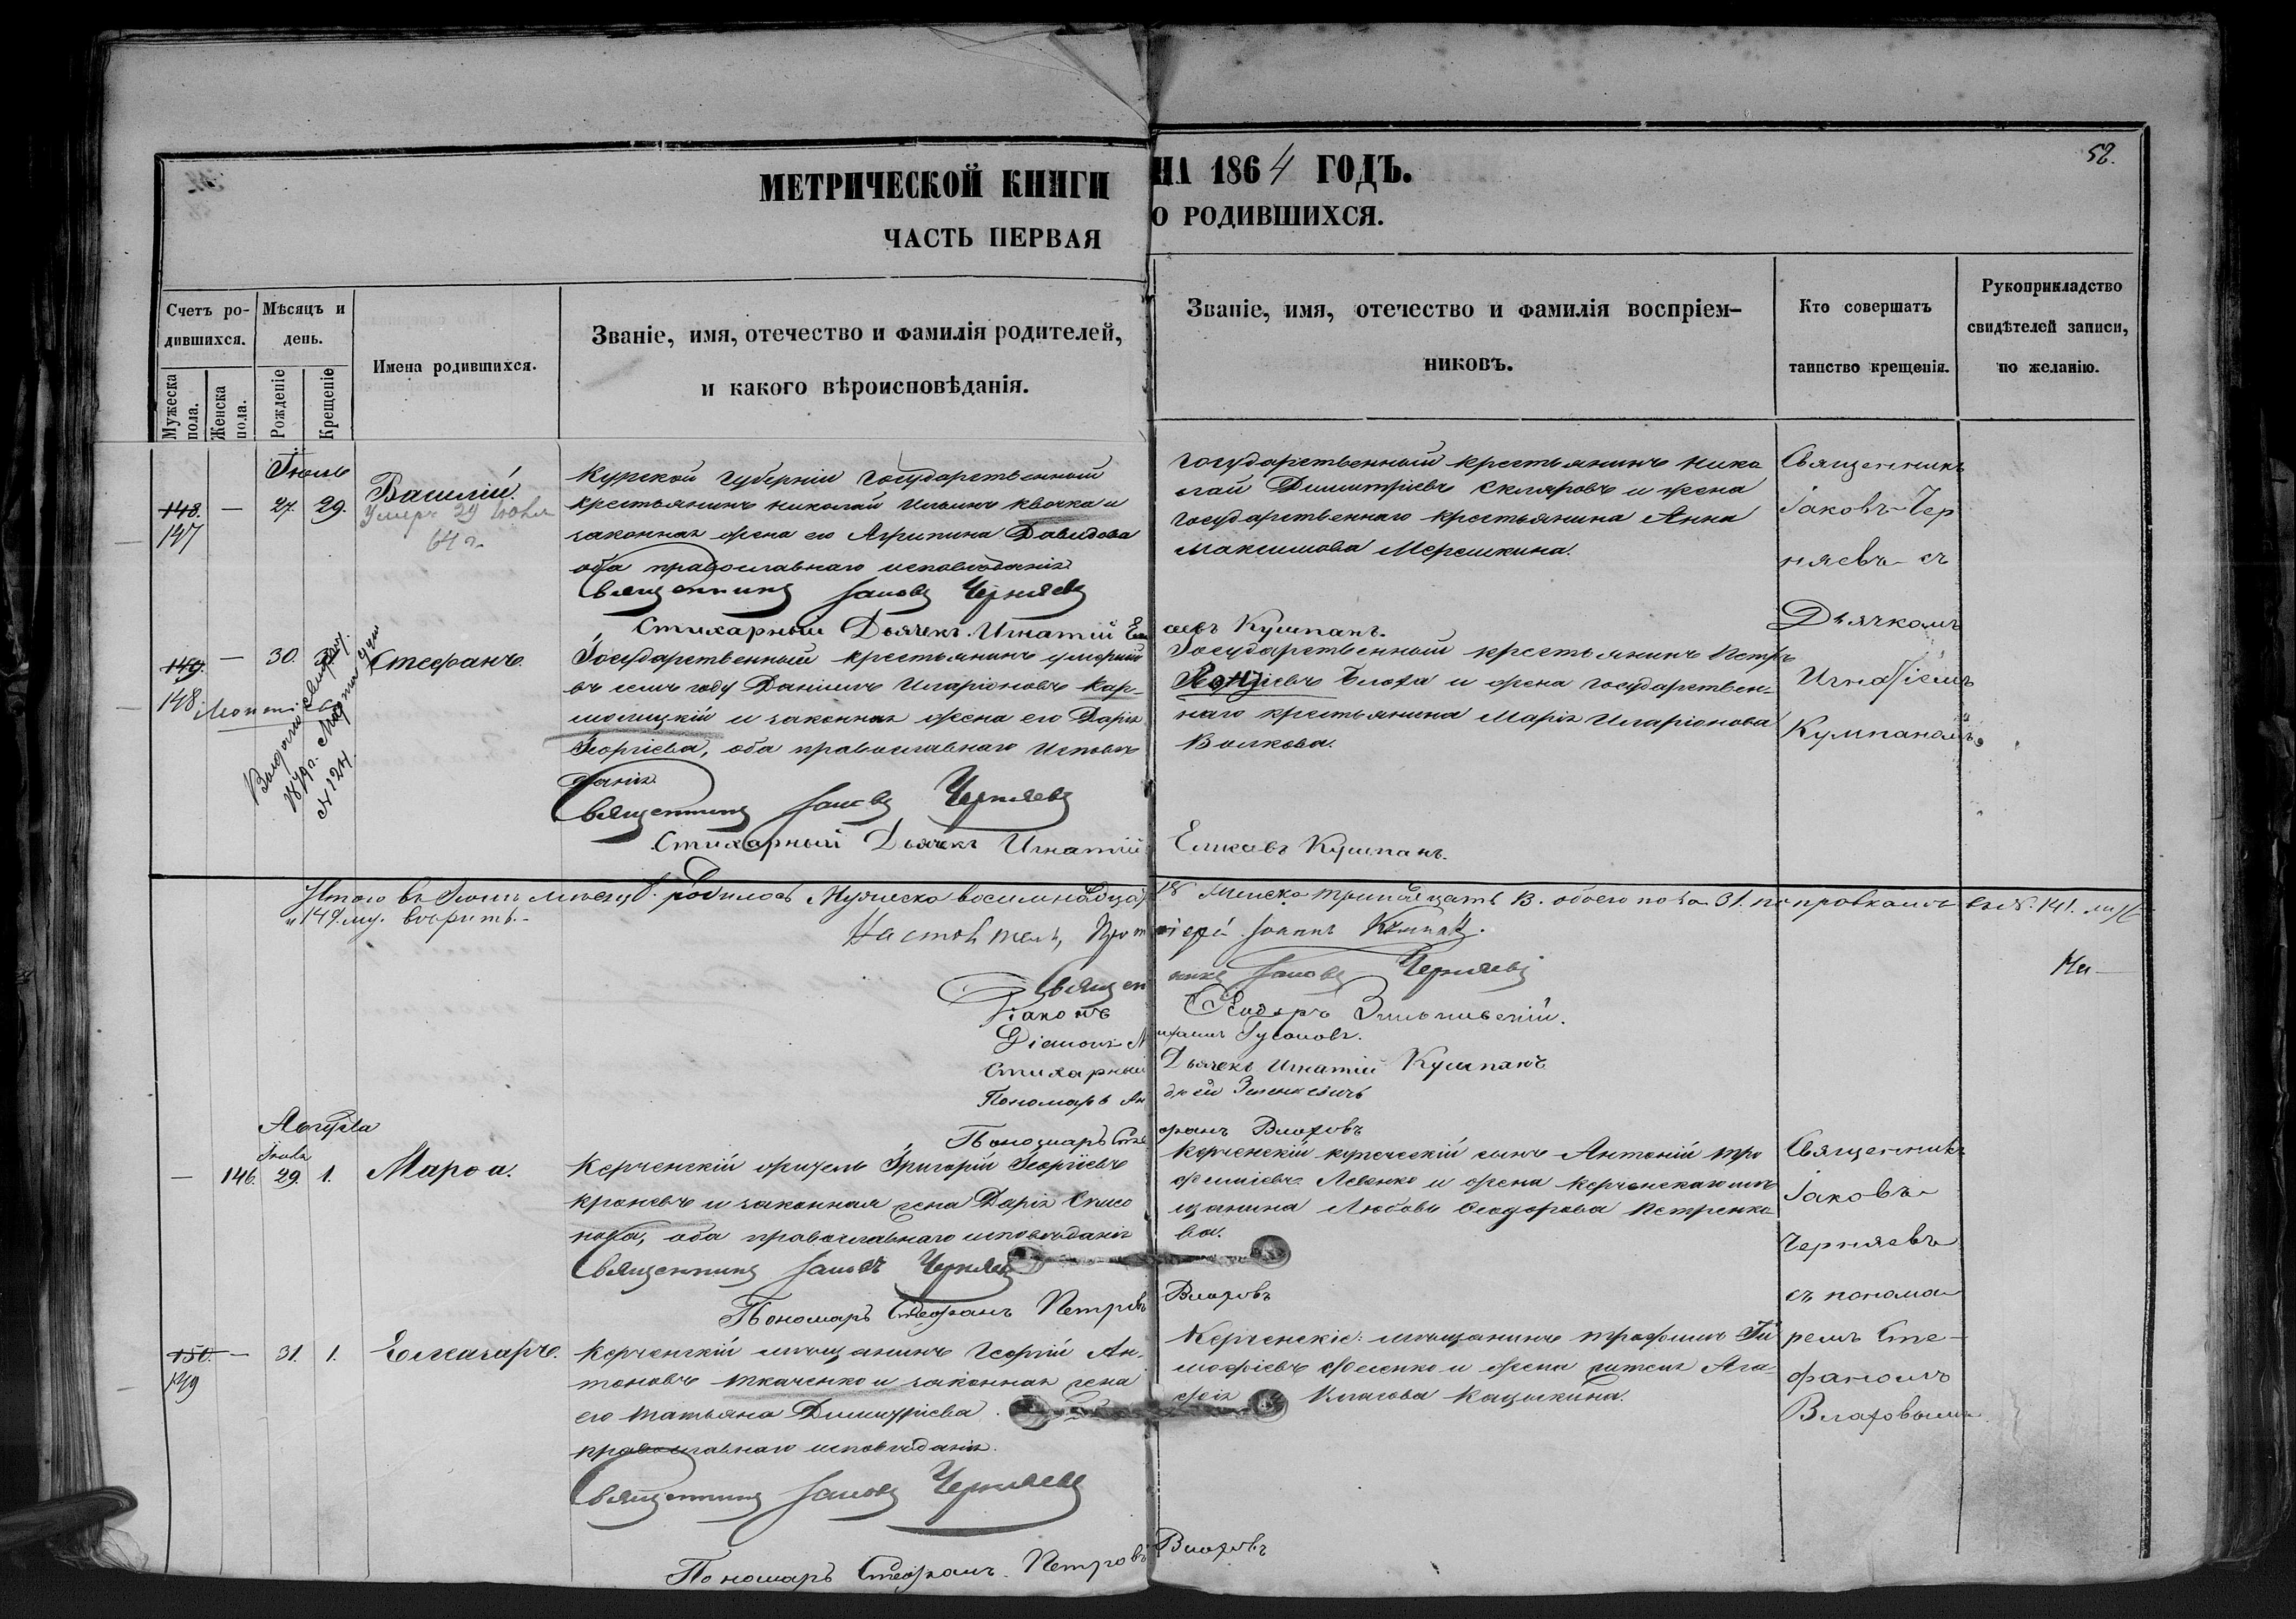 МЕТРИЧЕСКОЙ КНИГИ НА 1864 ГОДЪ.
58.
ЧАСТЬ ПЕРВАЯ О РОДИВШИХСЯ.
Счетъ родившихся.
Мужеска пола.
Женска пола.
Мѣсяцъ и день.
Рожденіе
Крещеніе
Имена родившихся.
Званіе, имя, отечество и фамилія родителей,
и какого вѣроисповѣданія.
Званіе, имя, отечество и фамилія воспріем-
никовъ.
Кто совершатъ
таинство крещенія.
Рукоприкладство
свидѣтелей записи,
по желанію.
Іюль
148.
147
—
27.
29.
Василій.
Умеръ 29 Іюля
64 г.
Курской Губерніи Государственный
крестьянинъ Николай Ильинъ Квочка и
законная жена его Агрипина Давидова
оба православнаго исповѣданія
Священникъ Іаковъ Черняевъ
Стихарный Дьячекъ Игнатій
Государственный крестьянинъ Нико
лай Димитріевъ Скляровъ и жена
Государственнаго крестьянина Анна
Максимова Мерешкина.
Кумпанъ.
Священникъ
Іаковъ Чер
няевъ съ
Дьячкомъ
Игнатіемъ
Кумпаномъ.
149.
148.
—
30.
Стефанъ.
Государственный крестьянинъ умершій
въ семъ году Даніилъ Иларіоновъ Кар-
молицкій и законная жена его Дарія
Георгіева, оба православнаго исповѣ
данія
Священникъ Іаковъ Черняевъ
Стихарный Дьячекъ Игнатій Кумпанъ.
Государственный крестьянинъ Петръ
Бѣлоха и жена Государствен-
наго крестьянина Марія Иларіонова
Волкова.
Итого въ Іюлѣ мѣсяцѣ родилось Мужеска восемнадцать 18 Женска тринадцать 13. обоего пола 31. поправкамъ въ №. 141.
и 149. му. вѣрить.
Священникъ Іаковъ Черняевъ
Діаконъ Ѳеодоръ
Діаконъ Гусаковъ.
Стихарный Дьячекъ Игнатій Кумпанъ
Пономарь Андрей
Пономарь Стефанъ Влаховъ
Августа
Іюля
—
146.
29.
1.
Марѳа.
Керченскій житель Григорій Георгіевъ
и законная жена Дарія Симо
нова, оба православнаго исповѣданія
Священникъ Іаковъ Черняевъ
Пономарь Стефанъ Петровъ Влаховъ
Керченскій купеческій сынъ Антоній Тро
фимовъ Левенко и жена Керченскаго мѣ
щанина Любовь Ѳеодорова Петренко
ва.
Священникъ
Іаковъ
Черняевъ
съ понома
ремъ Сте-
фаномъ
Влаховымъ
150.
149
—
31.
1.
Елеазаръ.
Керченскій мѣщанинъ Георгій Ан-
тоновъ Ткаченко и законная жена
его Татьяна Димитріева
православнаго исповѣданія.
Священникъ Іаковъ Черняевъ
Пономарь Стефанъ Петровъ Влаховъ
Керченскіе: мѣщанинъ Трофимъ Ти
моѳіевъ и жена жителя Ага-
ѳія Власова Кацыкина.